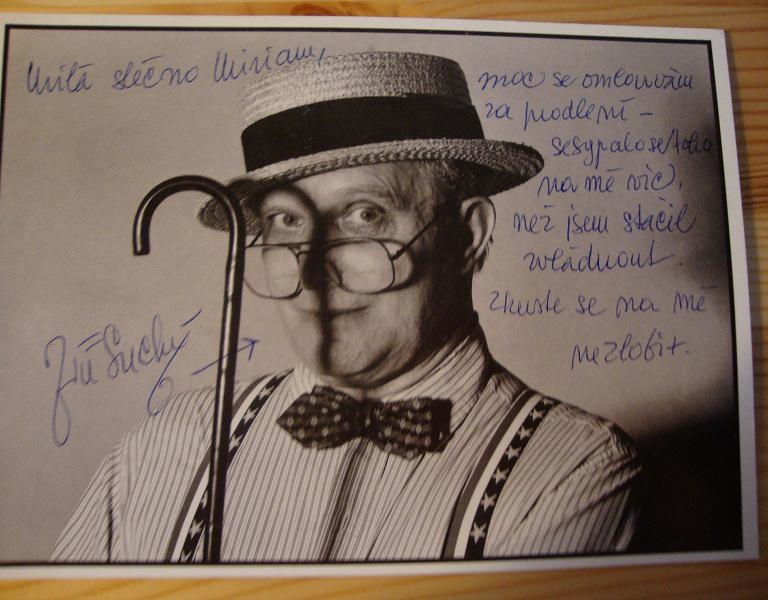 Milá slečno Miriam,
moc se omlouvám
za prodlení –
sesypalo se toho
na mě víc,
než jsem stačil
zvládnout.
Zkuste se na mě
nezlobit.
Jiří Suchý